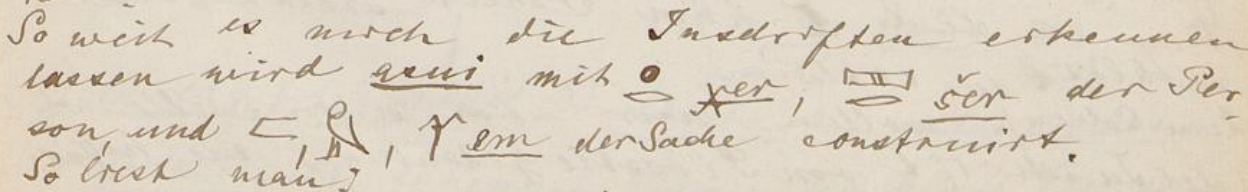 So weit es noch die Inschriften erkennen
lassen wird asui mit χer, šer der Per-
son, und em der Sache construirt.
So liest man: